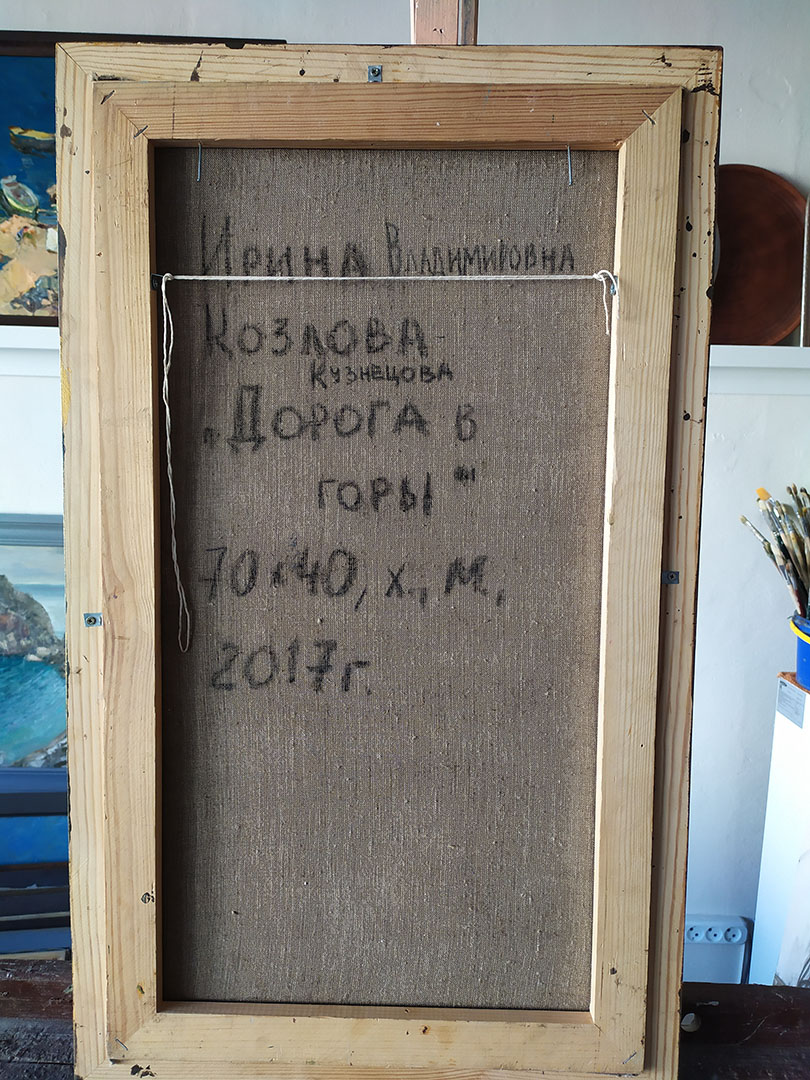 Ирина Владимировна
Козлова-
Кузнецова
„Дорога в
горы"
70х40, х., м.,
2017г.